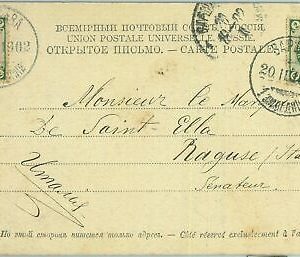 ВСЕМІРНЫЙ ПОЧТОВЫЙ СОЮЗЪ. РОССІЯ.
UNION POSTALE UNIVERSELLE. RUSSIE.
ОТКРЫТОЕ ПИСЬМО. — CARTE POSTALE
Monsieur le Mar
De Saint-Ella
Raguse (Ita
Senateur
Италия
По этой сторонѣ пишется только адресъ. — Côté réservé exclusivement à l'a